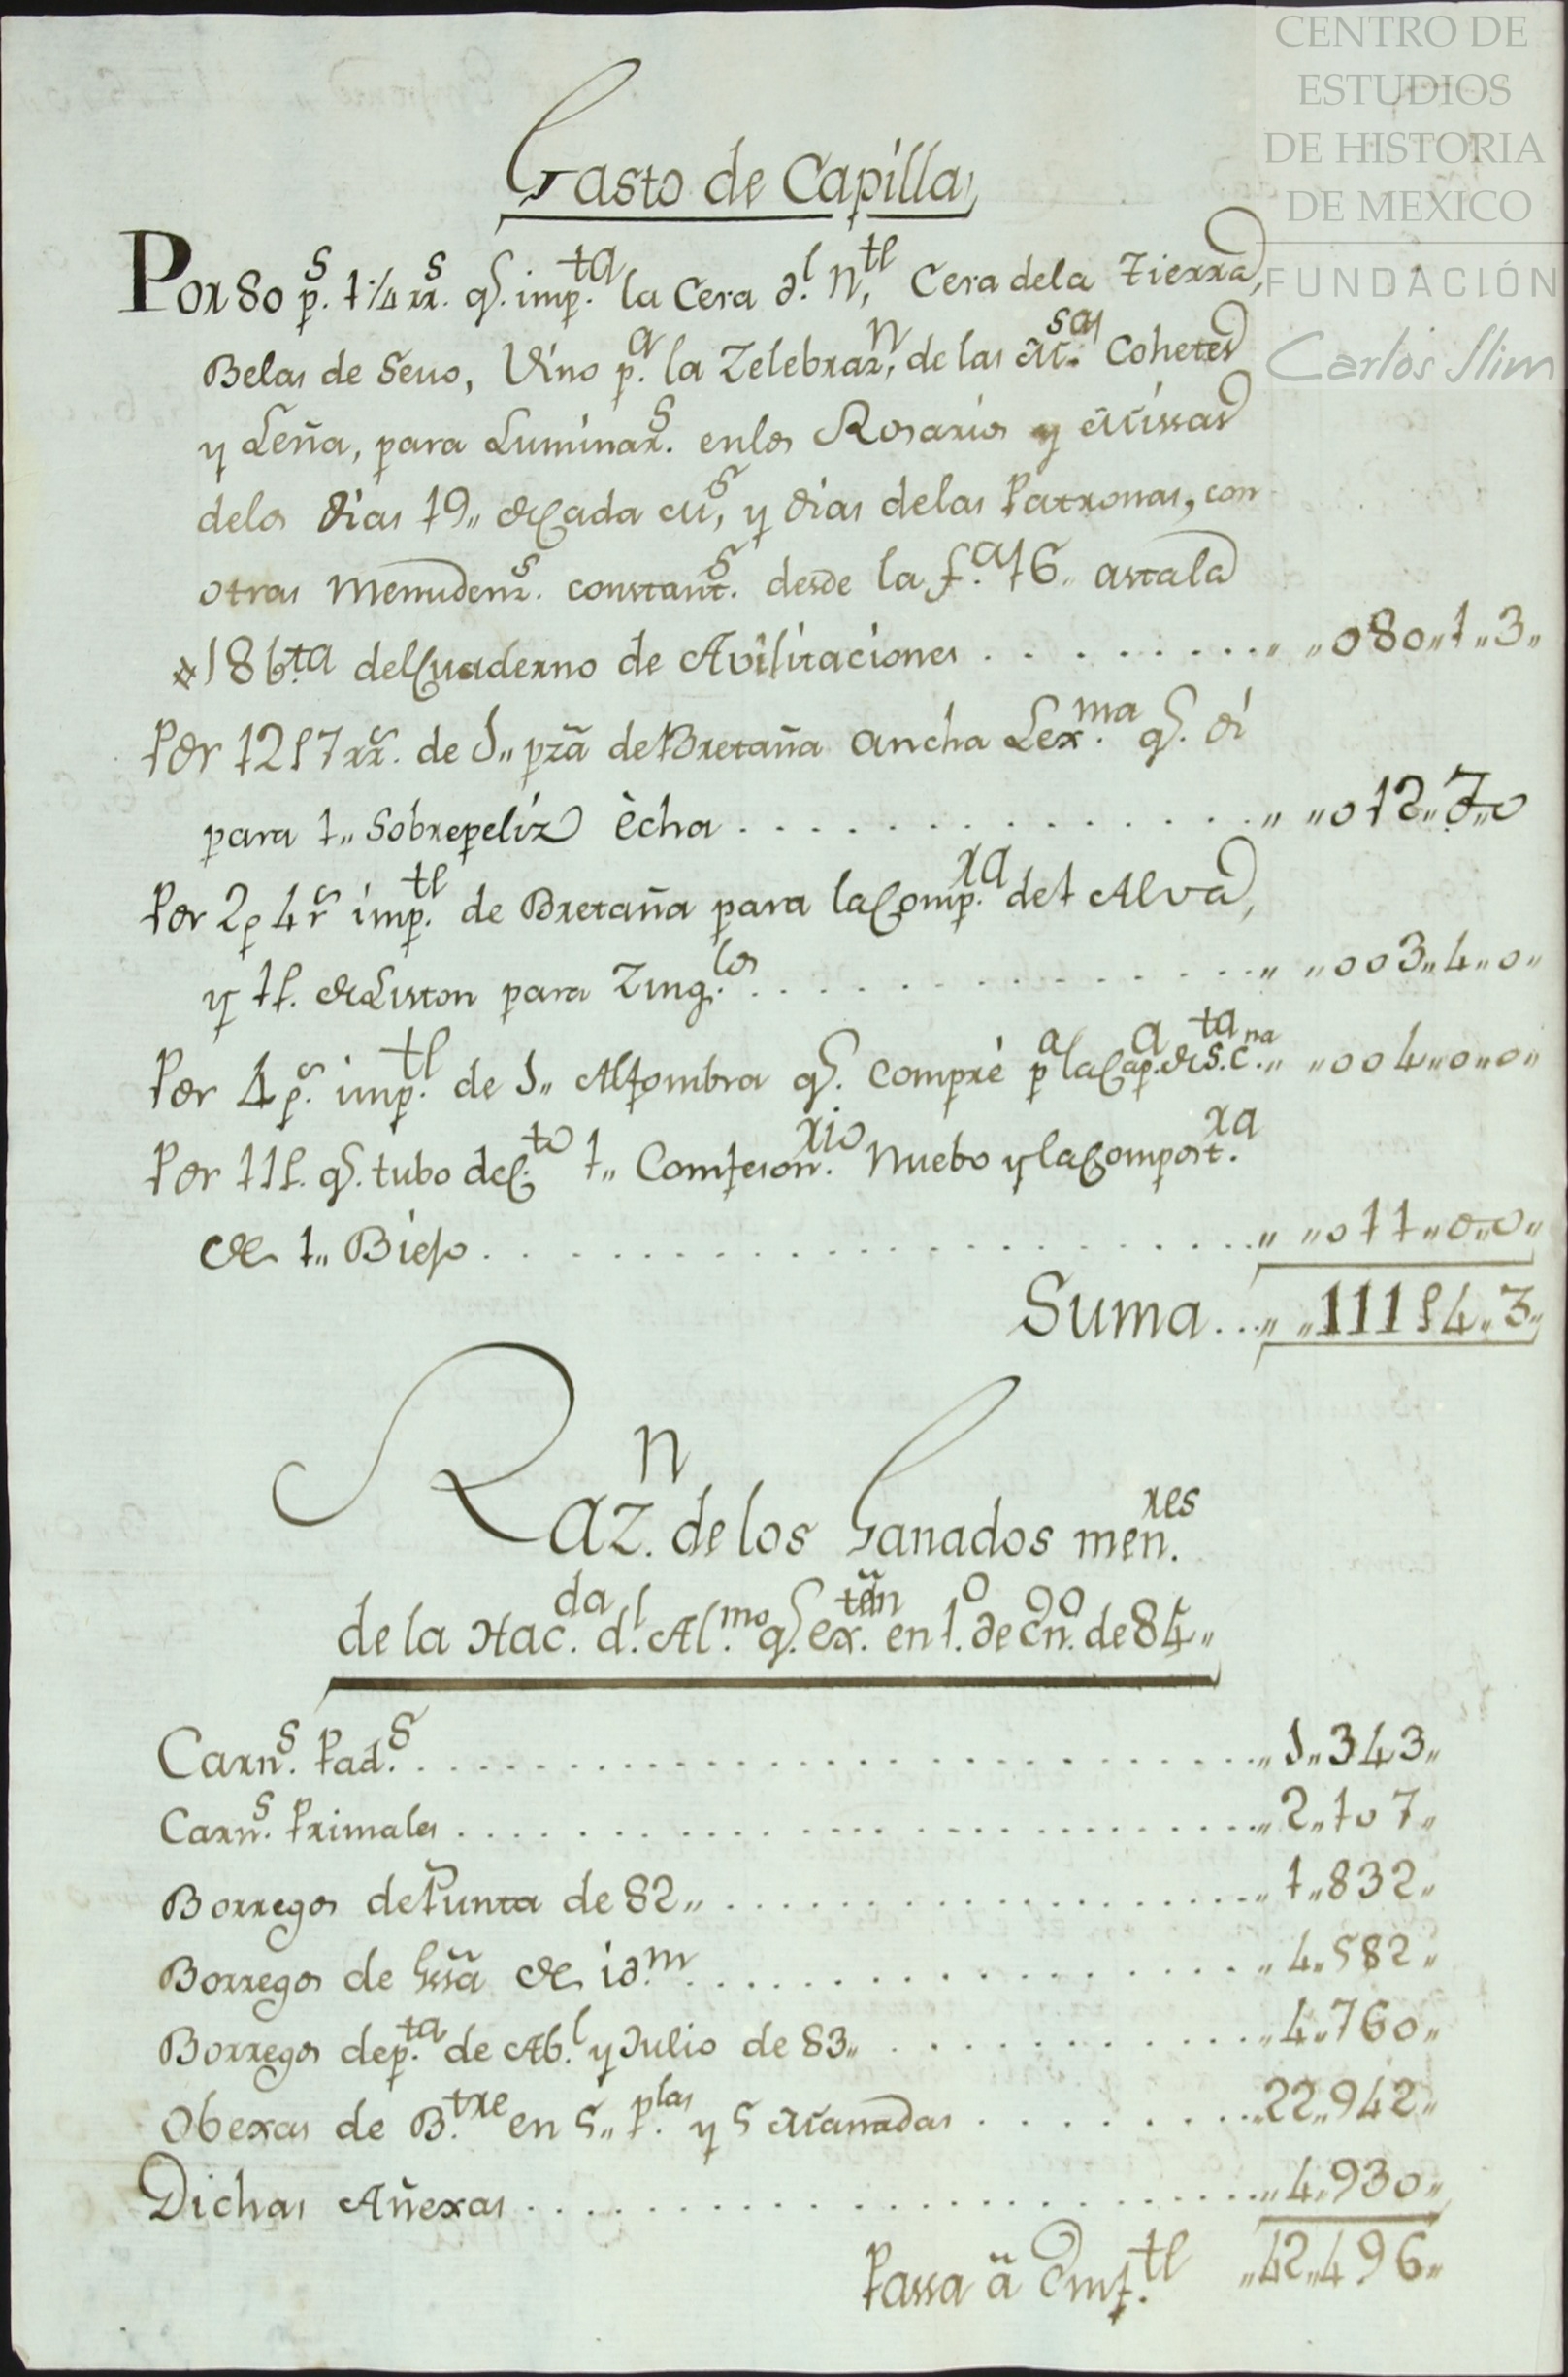 CENTRO DE
ESTUDIOS
DE HISTORIA
DE MEXICO
FUNDACIÓN
Carlos Slim
Gasto de Capilla
Por 80 p.s 1 1/4 rr.s q.e imp.ta la Cera d.l N.tl, Cera dela Tierra,
Belas de Sevo, Vino p.a la Zelebraz.n, de las M.sas Cohetes
y Leña, para Luminar.s enlos Rosarios y Missas
delos dias 19,, de Cada M.s, y dias delas Patronas, con
otras Menudenz.s constant.s desde la f.a 16,, astala
#186ta del Cuaderno de Avilitaciones ........,, ,,080,,1,,3,,
Por 12 p 7 rr.s de 1,, pzã de Bretaña ancha Lex.ma q.e di
para 1,, Sobrepeliz echa ...............,, ,,012,,7,,0
Por 2p 4r.s imp.tl de Bretaña para la Comp.ra de 1 Alva,
y 1p. de Liston para Zing.los ..............,, ,,003,,4,,0,,
Por 4 p.s imp.tl de 1,, Alfombra q.e Compré p.a la Cap.a de S.ta C.na,, ,,004,,0,,0,,
Por 11p. q.e tubo de C.to 1,, Comfeson.rio Nuebo y la Compost.ra
de 1,, Biejo ....................,, ,,011,,0,,0,,
Suma...,, ,,111p4,,3,,
Raz.n de los Ganados men.res
de la Hac.da d.l Al.mo q.e ex.tan en 1.o de En.o de 84,,
Carn.s Pad.s ........................,,1,,343,,
Carn.s Primales ........................,,2,,107,,
Borregos de Punta de 82,, ..................,,1,,832,,
Borregos de de id.m ..................,,4,,582,,
Borregos de p.ta de Ab.l y Julio de 83,, ............,,4,,760,,
Obexas de B.tre en 5,, p.las y 5 Manadas .........,,22,,942,,
Dichas Añexas ......................,,4,,930,,
Passa ä Emf.tl ,,42,,496,,